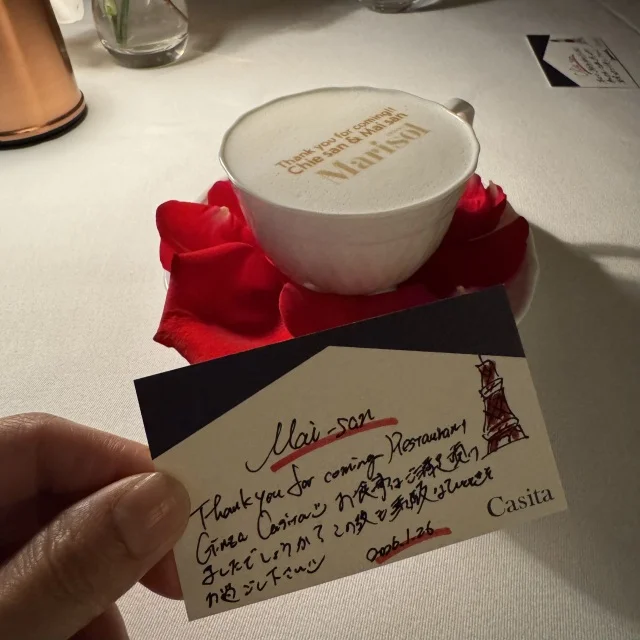 Thank you for coming!!
Chie san & Mai san
Marisol
Mai-san
Thank you for coming Restaurant
Ginza Casita お食事はご満足頂け
ましたでしょうか？この後も素敵な
お過ごし下さい
2026.1.26
Casita